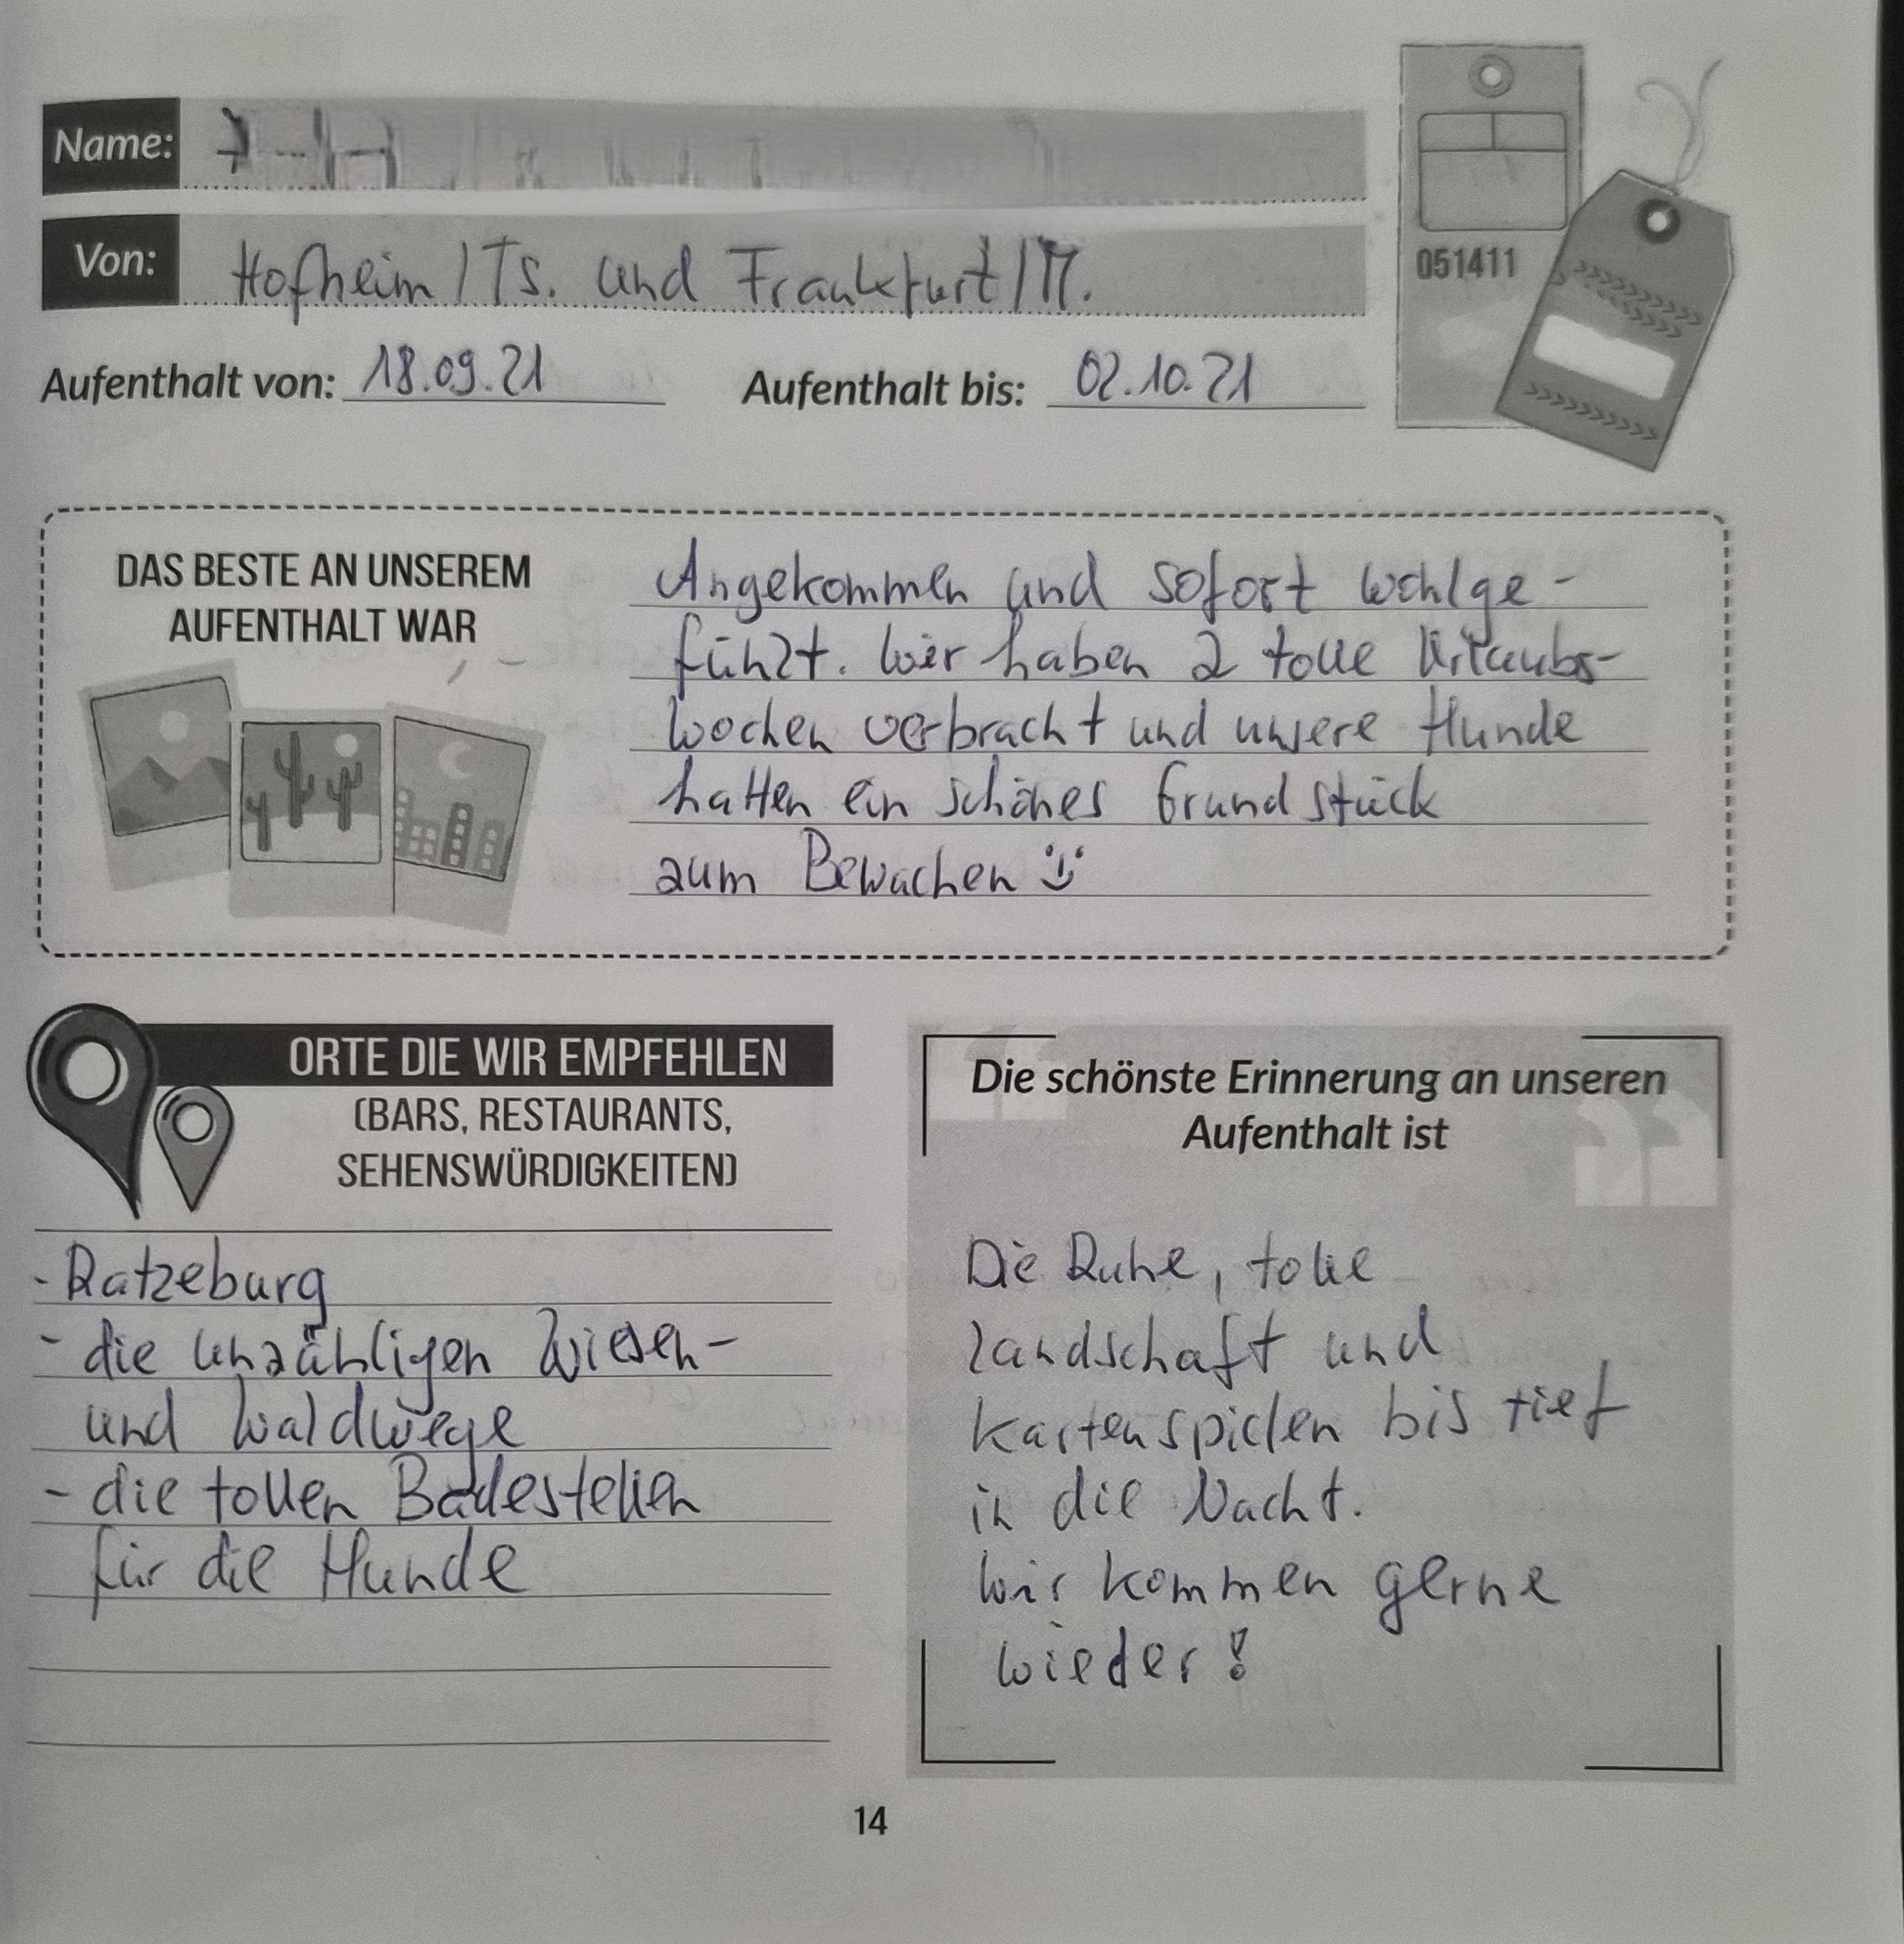 Name:
Von: Hofheim/Ts. und Frankfurt/M.
Aufenthalt von: 18.09.21 Aufenthalt bis: 02.10.21
051411
DAS BESTE AN UNSEREM
AUFENTHALT WAR
Angekommen und sofort wohlge-
fühlt. Wir haben 2 tolle Urlaubs-
wochen verbracht und unsere Hunde
hatten ein schönes Grundstück
zum Bewachen
ORTE DIE WIR EMPFEHLEN
(BARS, RESTAURANTS,
SEHENSWÜRDIGKEITEN)
- Ratzeburg
- die unzähligen Wiesen-
und Waldwege
- die tollen Badestellen
für die Hunde
Die schönste Erinnerung an unseren
Aufenthalt ist
Die Ruhe, tolle
Landschaft und
Kartenspielen bis tief
in die Nacht.
Wir kommen gerne
wieder!
14